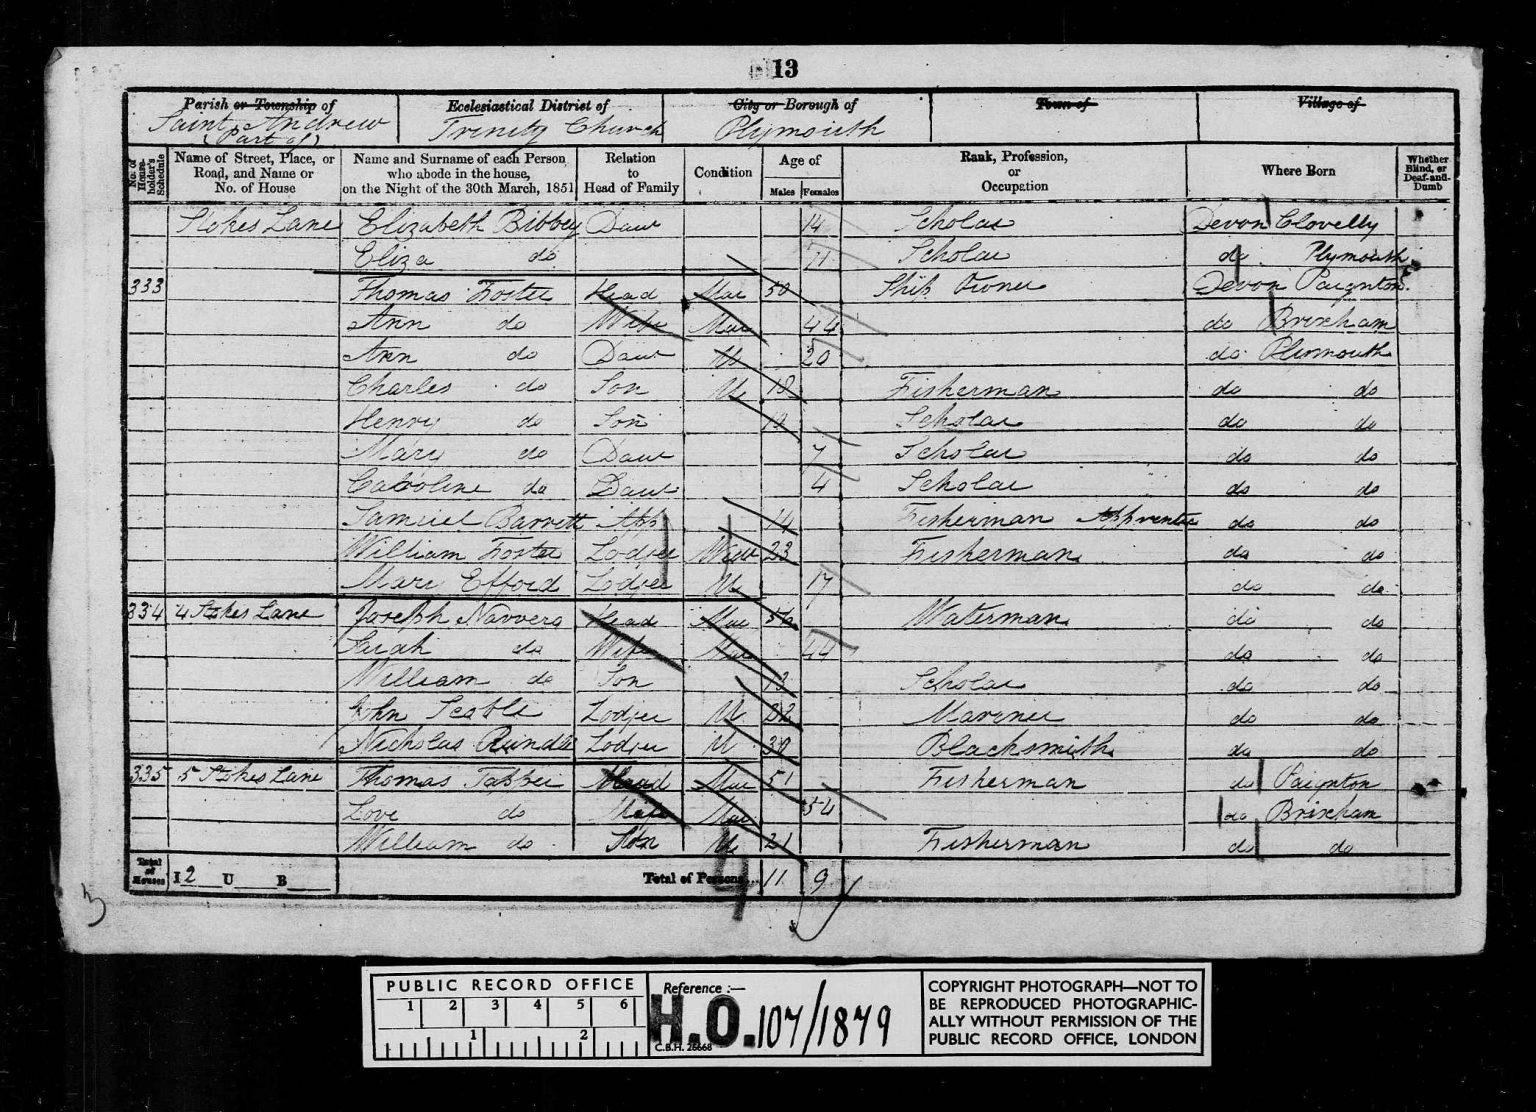 13
Parish or Township of Ecclesiastical District of City or Borough of Town of Village of
Saint Andrew Trinity Church Plymouth
(Part of)
No. of Householder's Schedule Name of Street, Place, or Road, and Name or No. of House Name and Surname of each Person who abode in the house, on the Night of the 30th March, 1851 Relation to Head of Family Condition Age of Males Females Rank, Profession, or Occupation Where Born Whether Blind, or Deaf-and-Dumb
Stokes Lane Elizabeth Bibbey Daur 14 Scholar Devon Clovelly
Eliza do 11 Scholar do Plymouth
333 Thomas Foster Head Mar 50 Ship Owner Devon Paignton
Ann do Wife Mar 44 do Brixham
Ann do Daur U 20 do Plymouth
Charles do Son U 18 Fisherman do do
Henry do Son 10 Scholar do do
Mary do Daur 7 Scholar do do
Caroline do Daur 4 Scholar do do
Samuel Barrett App 14 Fisherman Apprentice do do
William Foster Lodger Widr 23 Fisherman do do
Mary Efford Lodger U 17 do do
334 4 Stokes Lane Joseph Navvers Head Mar 56 Waterman do do
Sarah do Wife Mar 44 do do
William do Son 13 Scholar do do
John Scoble Lodger U 32 Mariner do do
Nicholas Rundle Lodger U 30 Blacksmith do do
335 5 Stokes Lane Thomas Head Mar 51 Fisherman do Paignton
Love do Wife Mar 54 do Brixham
William do Son U 21 Fisherman do do
Total of Houses I 2 U B Total of Persons... 11 9
4
3
PUBLIC RECORD OFFICE
1 2 3 4 5 6
1 2
Reference :—
H.O. 107/1879
C.B.H. 26668
COPYRIGHT PHOTOGRAPH—NOT TO
BE REPRODUCED PHOTOGRAPHIC-
ALLY WITHOUT PERMISSION OF THE
PUBLIC RECORD OFFICE, LONDON